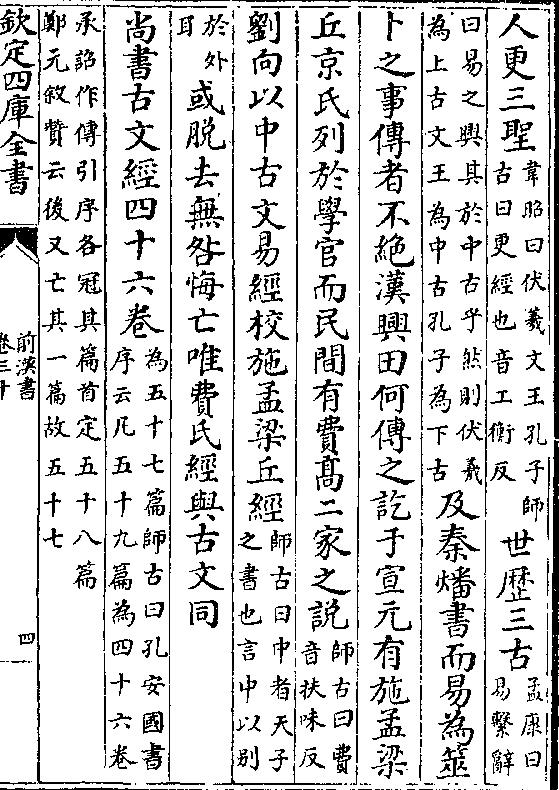 人更三聖韋昭曰伏羲文王孔子師古曰更經也音工衡反世歴三古孟康曰易繫辭
曰易之興其於中古乎然則伏羲為上古文王為中古孔子為下古及秦燔書而易為筮
卜之事傳者不絶漢興田何傳之訖于宣元有施孟梁
丘京氏列於學官而民間有費髙二家之説師古曰費音扶味反
劉向以中古文易經校施孟梁丘經師古曰中者天子之書也言中以别
於外耳或脱去無咎悔亡唯費氏經與古文同
尚書古文經四十六卷為五十七篇師古曰孔安國書序云凡五十九篇為四十六卷
承詔作傳引序各冠其篇首定五十八篇鄭元敘贊云後又亡其一篇故五十七
欽定四庫全書
前漢書
卷三十
四